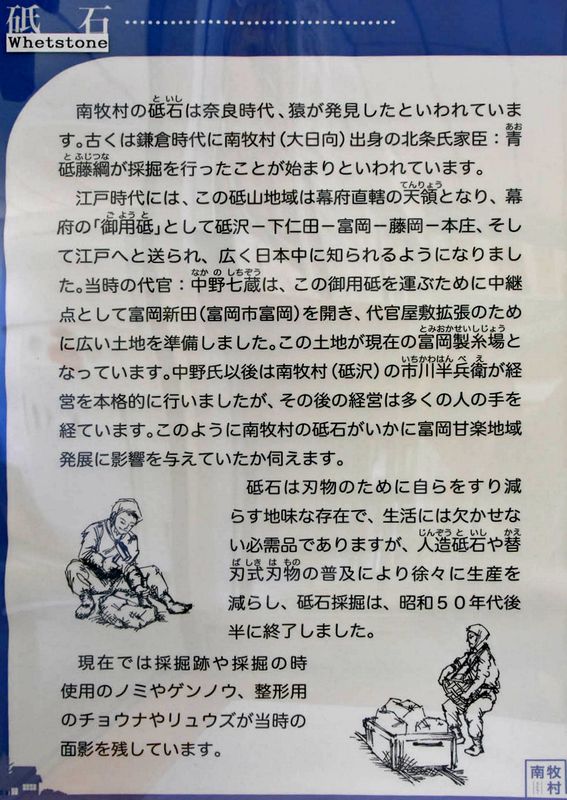 砥石
Whetstone
南牧村の砥石は奈良時代、猿が発見したといわれていま
す。古くは鎌倉時代に南牧村（大日向）出身の北条氏家臣：青
砥藤綱が採掘を行ったことが始まりといわれています。
江戸時代には、この砥山地域は幕府直轄の天領となり、幕
府の「御用砥」として砥沢－下仁田－富岡－藤岡－本庄、そし
て江戸へと送られ、広く日本中に知られるようになりまし
た。当時の代官：中野七蔵は、この御用砥を運ぶために中継
点として富岡新田（富岡市富岡）を開き、代官屋敷拡張のため
に広い土地を準備しました。この土地が現在の富岡製糸場と
なっています。中野氏以後は南牧村（砥沢）の市川半兵衛が経
営を本格的に行いましたが、その後の経営は多くの人の手を
経ています。このように南牧村の砥石がいかに富岡甘楽地域
発展に影響を与えていたか伺えます。
砥石は刃物のために自らをすり減
らす地味な存在で、生活には欠かせな
い必需品でありますが、人造砥石や替
刃式刃物の普及により徐々に生産を
減らし、砥石採掘は、昭和５０年代後
半に終了しました。
現在では採掘跡や採掘の時
使用のノミやゲンノウ、整形用
のチョウナやリュウズが当時の
面影を残しています。
南牧村